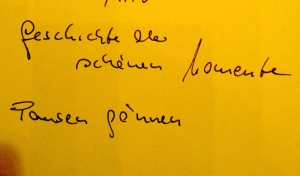 Geschichte der
schönen Momente
Pausen gönnen